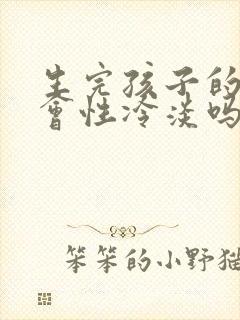 生完孩子的
會性冷淡吗
笨笨的小野猫